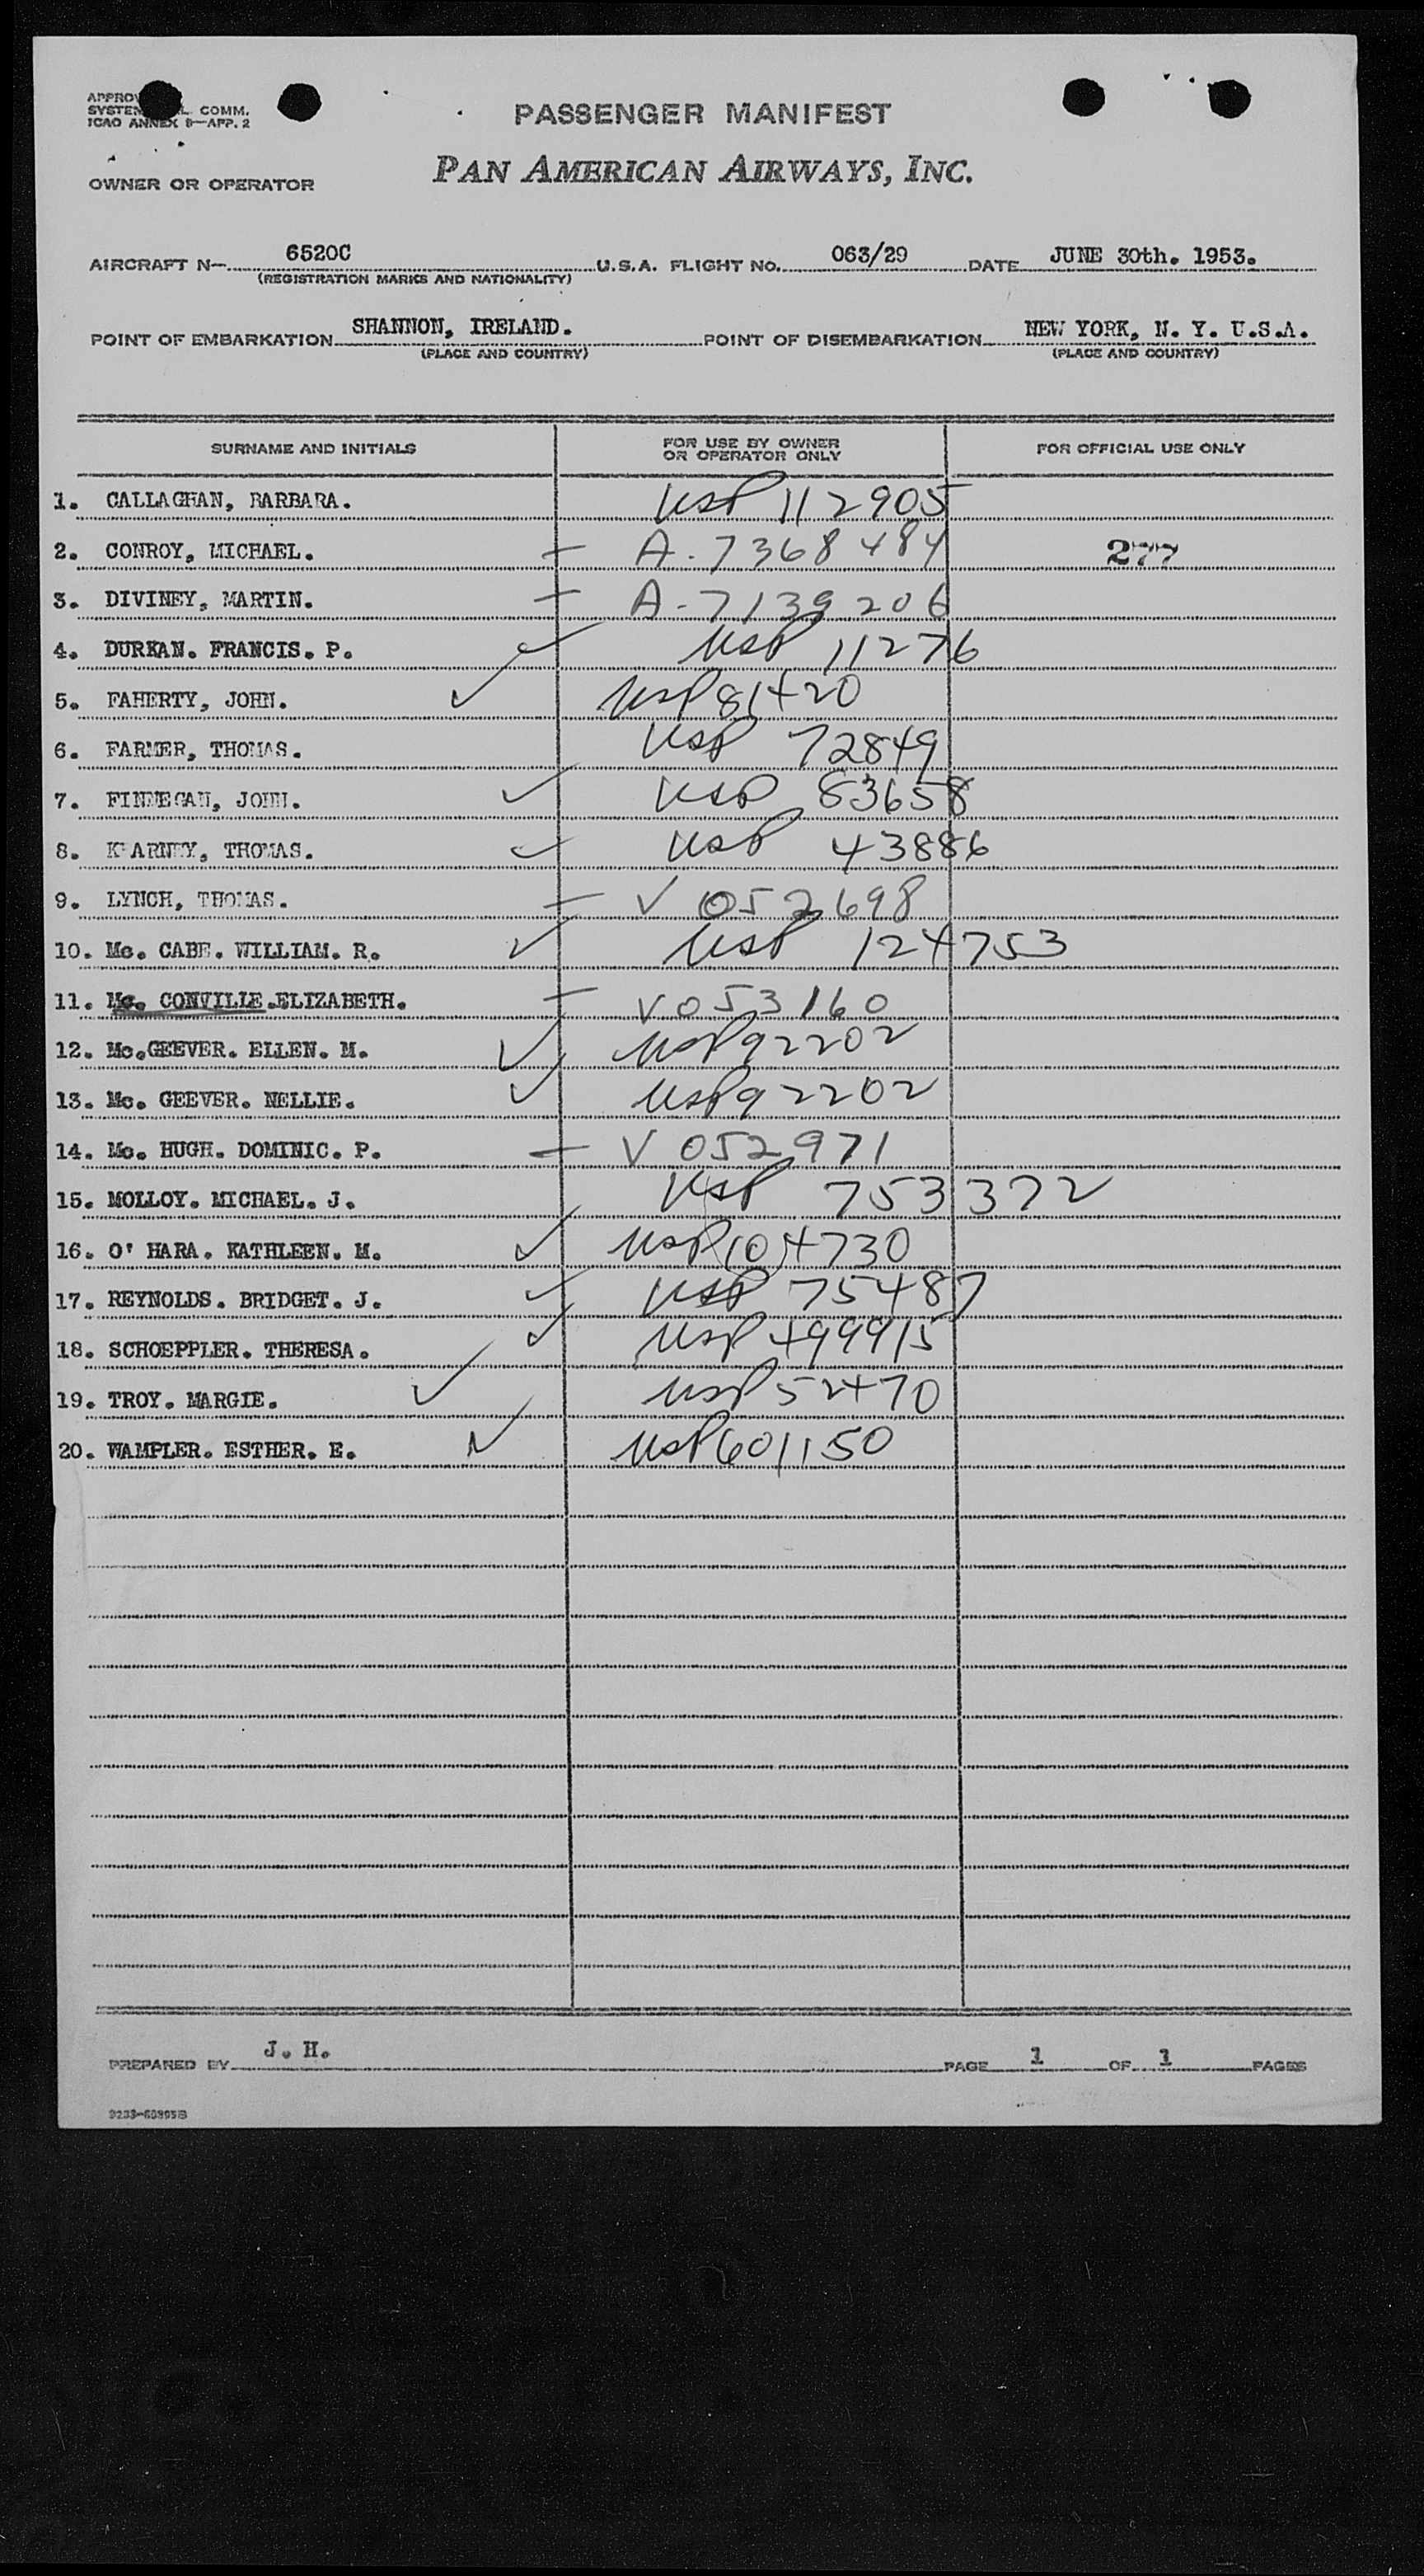 APPROV
SYSTEM L. COMM.
ICAO ANNEX 9—APP. 2
PASSENGER MANIFEST
OWNER OR OPERATOR PAN AMERICAN AIRWAYS, INC.
AIRCRAFT N— 6520C U.S.A. FLIGHT NO. 063/29 DATE JUNE 30th. 1953.
(REGISTRATION MARKS AND NATIONALITY)
POINT OF EMBARKATION SHANNON, IRELAND. POINT OF DISEMBARKATION NEW YORK, N. Y. U.S.A.
(PLACE AND COUNTRY) (PLACE AND COUNTRY)
SURNAME AND INITIALS FOR USE BY OWNER OR OPERATOR ONLY FOR OFFICIAL USE ONLY
1. CALLAGHAN, BARBARA. USP 112905
2. CONROY, MICHAEL. — A-7368484 277
3. DIVINEY, MARTIN. — A-7139206
4. DURKAN. FRANCIS. P. ✓ USP 11276
5. FAHERTY, JOHN. ✓ USP 81420
6. FARMER, THOMAS. USP 72849
7. FINNEGAN, JOHN. ✓ USP 83658
8. KEARNEY, THOMAS. ✓ USP 43886
9. LYNCH, THOMAS. — V 052698
10. Mc. CABE. WILLIAM. R. ✓ USP 124753
11. Mc. CONVILLE.ELIZABETH. — V 053160
12. Mc.GEEVER. ELLEN. M. ✓ USP 92202
13. Mc. GEEVER. NELLIE. ✓ USP 92202
14. Mc. HUGH. DOMINIC. P. — V 052971
15. MOLLOY. MICHAEL. J. USP 753372
16. O' HARA. KATHLEEN. M. ✓ USP 104730
17. REYNOLDS. BRIDGET. J. ✓ USP 75487
18. SCHOEPPLER. THERESA. ✓ USP 499915
19. TROY. MARGIE. ✓ USP 52470
20. WAMPLER. ESTHER. E. ✓ USP 601150
PREPARED BY J. H. PAGE 1 OF 1 PAGES